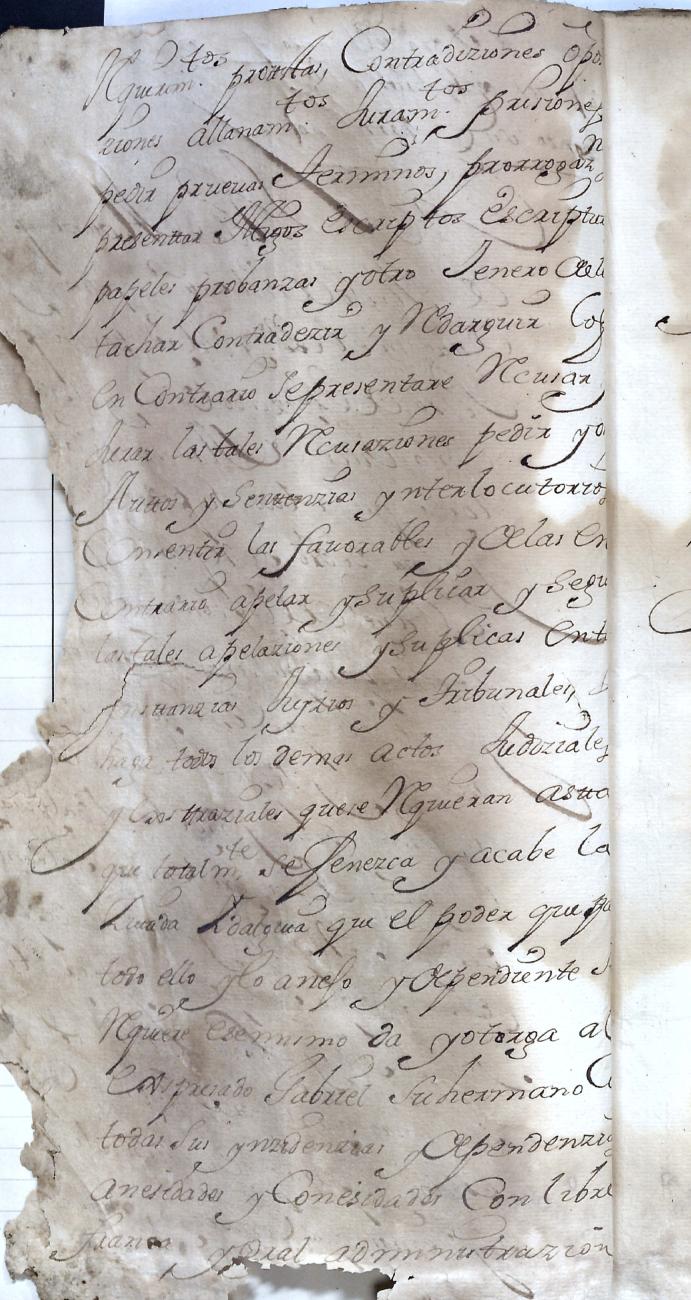 Requerim.tos protestas, Contradiziones opo
ziones allanam.tos Juram.tos prisiones
pedir pruevas terminos, prorrogaz
presentar testigos escriptos escriptu
papeles probanzas y otro Jenero de
tachar Contradezir y Redarguir Lo q
en Contrario se presentare Recusar
Jurar las tales Recusaziones pedir y o
Auttos y Sentenzias ynterlocutorios
Consentir las favorables y de las en
Contrario apelar y suplicar y segu
las tales apelaziones y suplicas en t
Instanzias Juizios y Tribunales
haga todos los demas actos Judiziales
y extrajudiziales que se Requieran asta
que totalm.te se fenezca y acabe la
Zitada Idalguia que el poder que pa
todo ello y lo anejo y dependiente
Requiere ese mismo da y otorga al
expresado Gabriel su hermano
todas sus ynzidenzias y dependenzi
anesidades y Conesidades Con libre
franca y gral administrazion